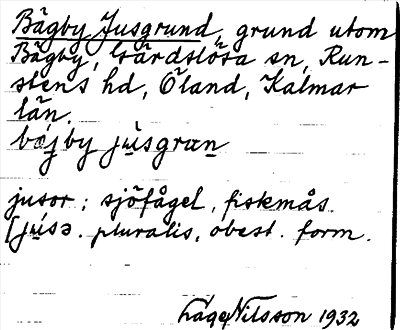 Bägby Jusgrund, grund utom
Bägby, Gärdslösa sn, Run-
stens hd, Öland, Kalmar
län.
bæjby jusgran
jusor; sjöfågel, fiskmås.
[jusə. pluralis, obest. form.
Låge Nilsson 1932